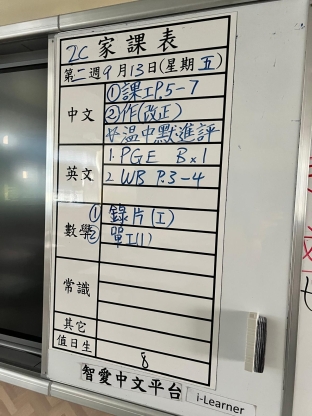 2C 家課表
第二週9月13日(星期五)
中文 ①課工P.5-7
②作(改正)
温中默進評
英文 1. PGE B x 1
2. WB P.3-4
數學 ① 錄片(I)
② 單工(1)
常識
其它
值日生 8
智愛中文平台
i-Learner